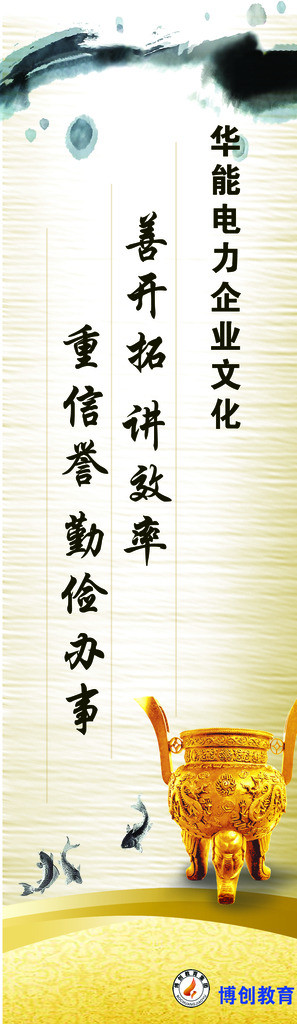 华能电力企业文化
善开拓 讲效率
重信誉 勤俭办事
博创教育